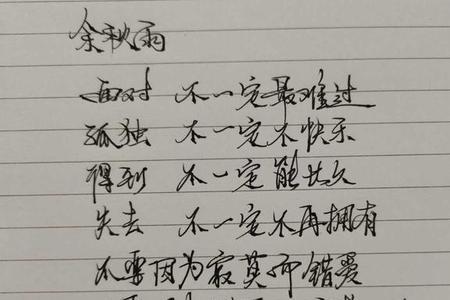 余秋雨
面对 不一定最难过
孤独 不一定不快乐
得到 不一定能长久
失去 不一定不再拥有
不要因为寂寞而错爱